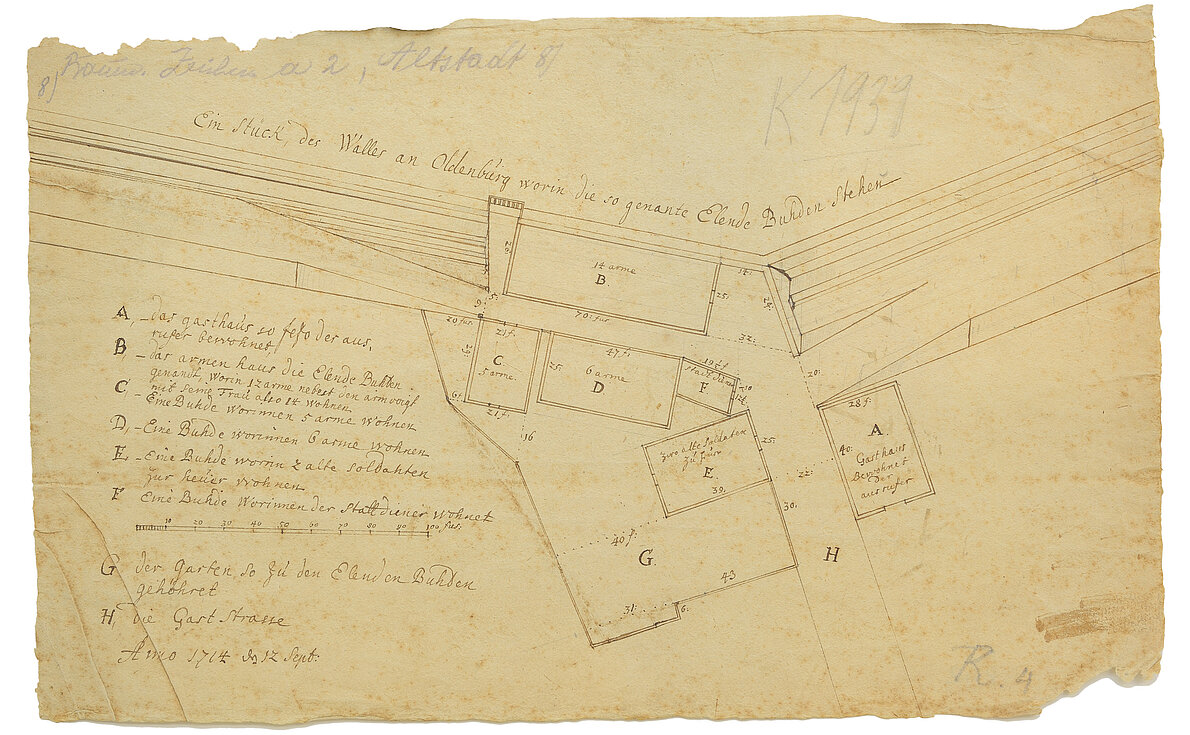 8) a 2, Altstadt 8)
K 1939
Ein Stück, des Walles an Oldenburg worin die so genante Elende Buhden Stehen
14 arme
B.
20
14.
25.
24.
70: fus
32.
9. 5.
20 fus.
21 f:
C
5 arme.
29
6.
21 f:
16
47 f:
25.
6 arme
D
19 f:
F.
10
12.
20.
zwo alte Soldaten
zu heür
E.
25.
39.
28 f:
A.
40.
Gasthaus
Bewohnet
der
ausrufer
22.
30.
40 f:
G.
H
43
31.
6.
A, – das gasthaus so jetzo der aus,
rufer bewohnet,
B, – das armen haus die Elende Buhden
genandt, worin 12 arme nebest den armvoigt
mit seine Frau also 14 wohnen
C, – Eine Buhde worinnen 5 arme wohnen
D, – Eine Buhde worinnen 6 arme wohnen
E, – Eine Buhde worin 2 alte Soldahten
zur heüer wohnen
F Eine Buhde Worinnen der Stall diener wohnet
10 20 30 40 50 60 70 80 90 100 fus.
G der Garten so zu den Elenden Buhden
gehöhret
H, die Gast Strasse
Anno 1714 den 12 Sept:
R. 4